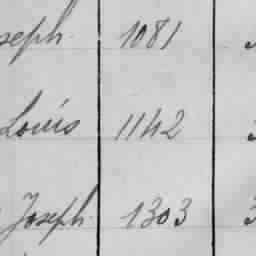 seph 1081
Louis 1142
Joseph 1303 3